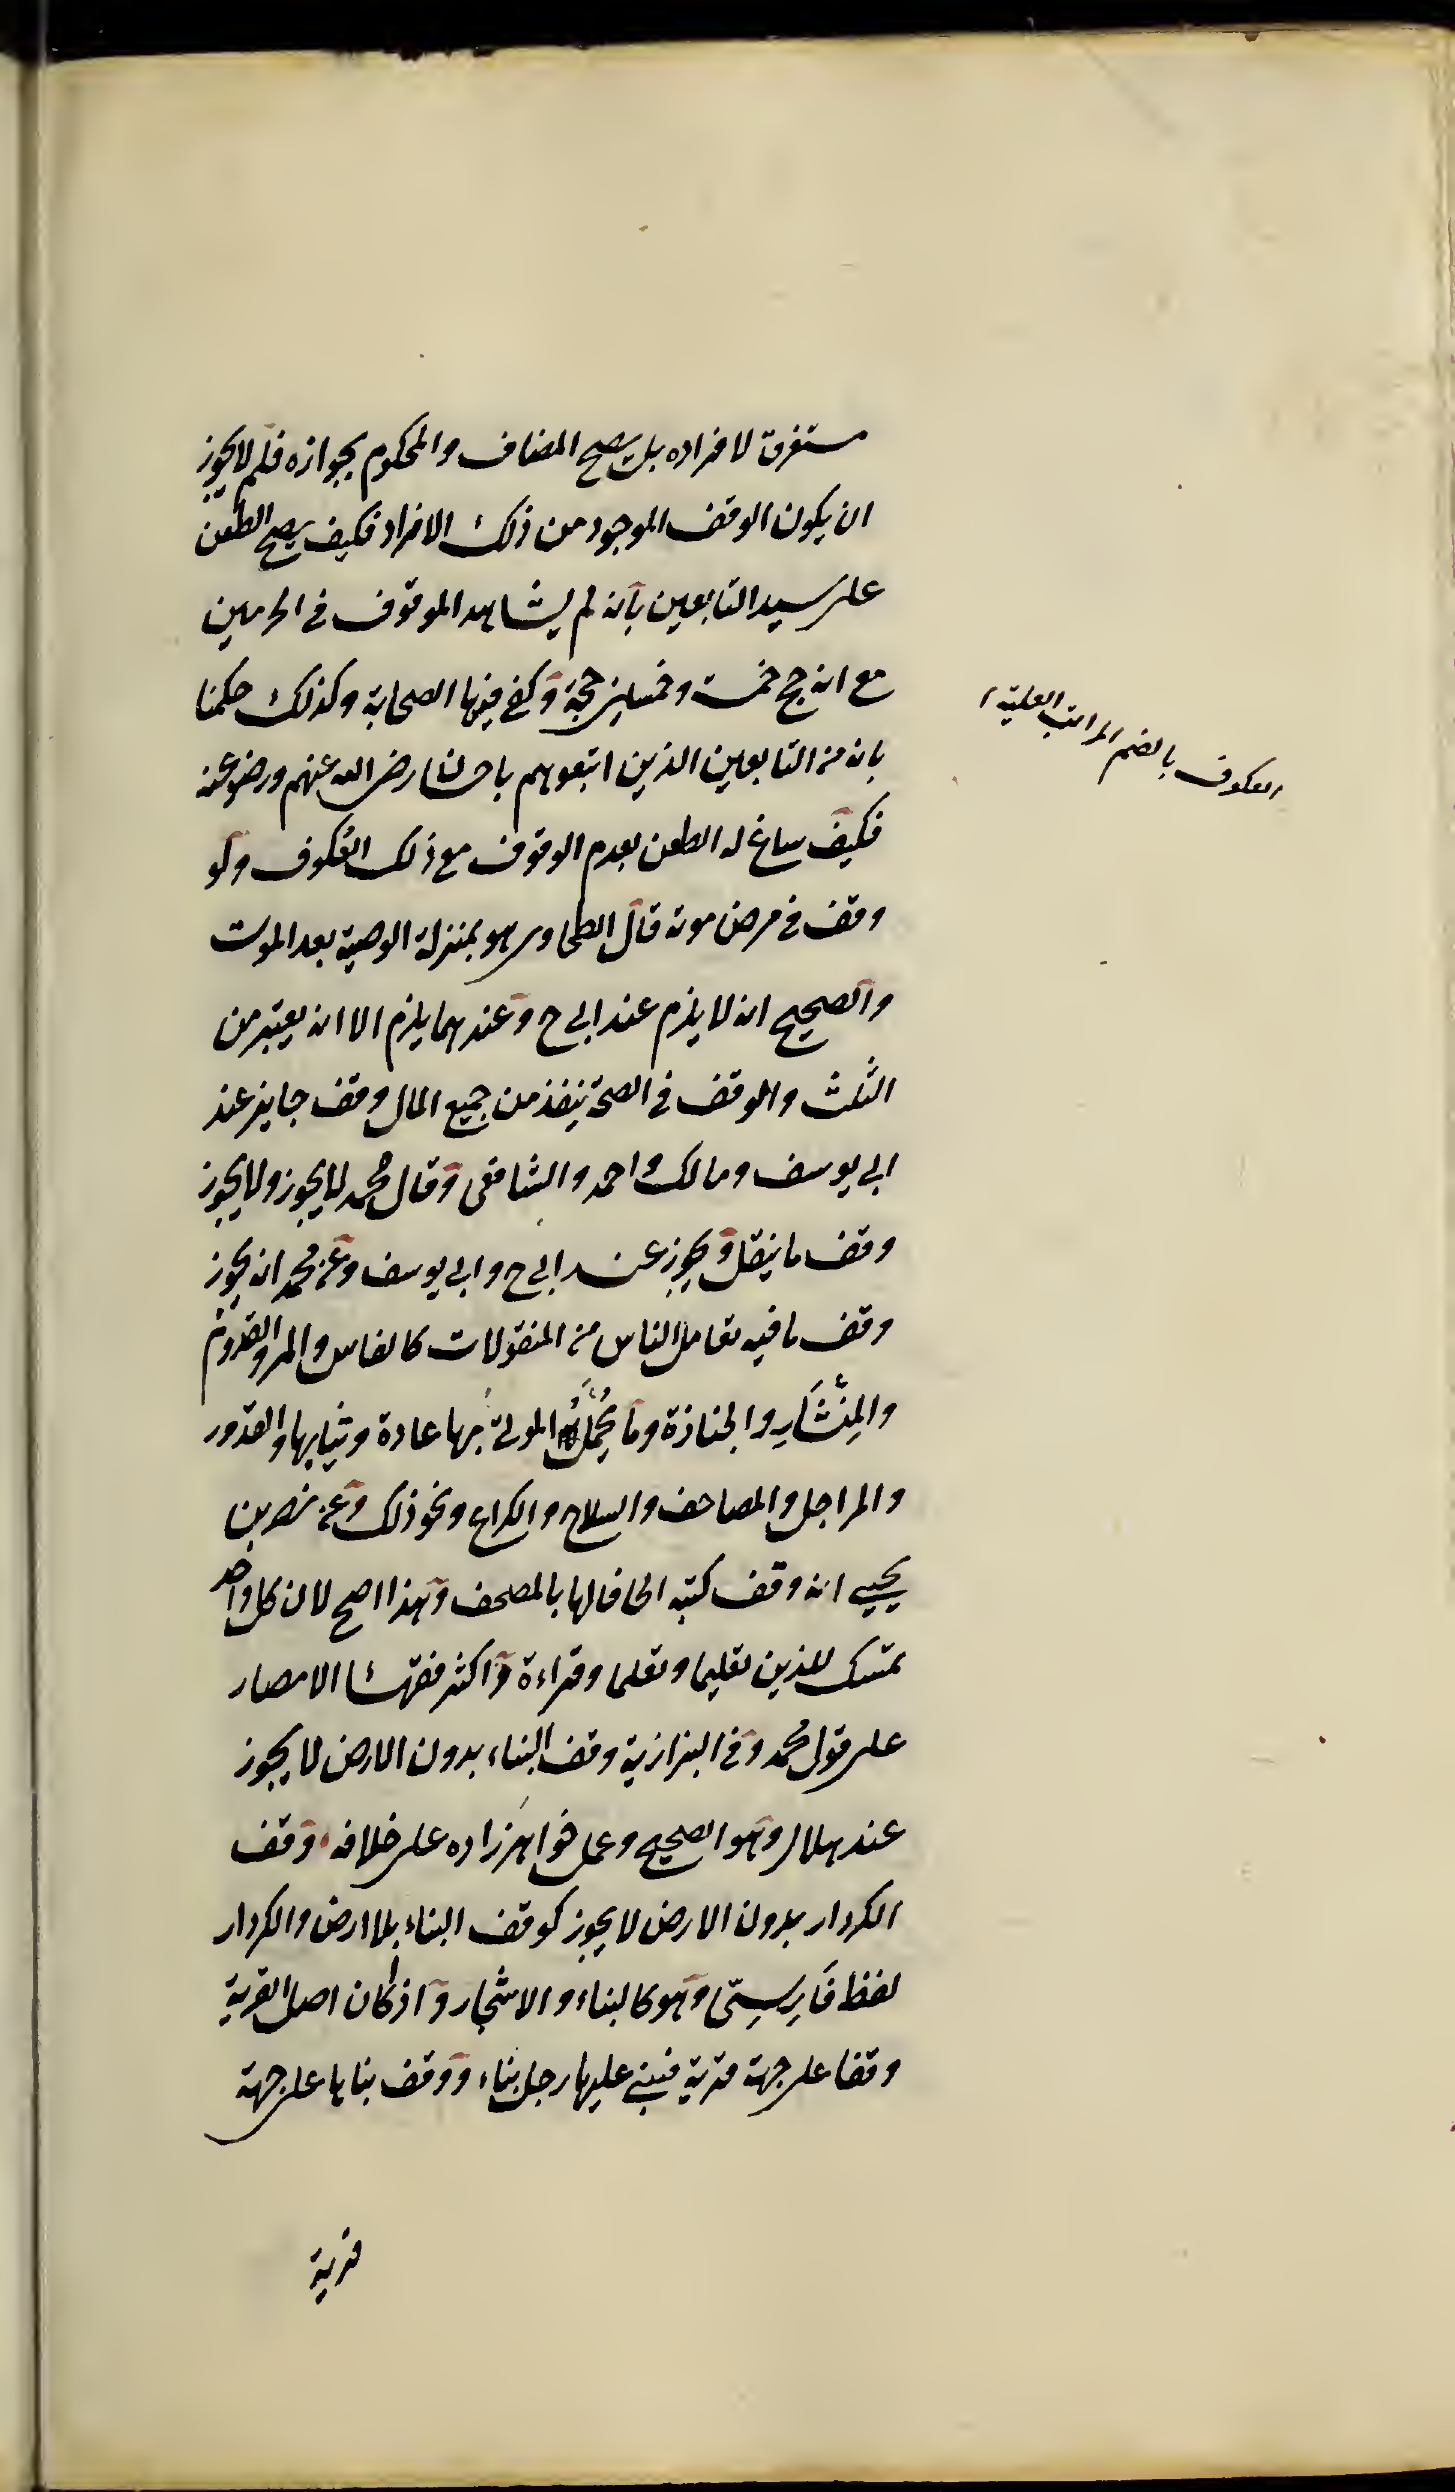 مستغرق لافراده بل يصح المضاف والمحكوم بجوازه فلم لا يجوز
ان يكون الوقف الموجود من ذلك الافراد فكيف يصح الطعن
على سيد التابعين بانه لم يشاهد الموقوف في الحرمين
مع انه حج خمسة وخمسين حجة وكفى فيها الصحابة وكذلك حكمنا
بانه من التابعين الذين اتبعوهم باحسان رضى الله عنهم ورضوا عنه
فكيف ساغ له الطعن بعدم الوقوف مع ذلك العُكوف ولو
وقف في مرض موته قال الطحاوى هو بمنزلة الوصية بعد الموت
والصحيح انه لا يلزم عند ابي ح وعندهما يلزم الا انه يعتبر من
الثلث والوقف في الصحة ينفذ من جميع المال وقف جايز عند
ابي يوسف ومالك واحمد والشافعى وقال محمد لا يجوز ولا يجوز
وقف ما ينقل ويجوز عند ابي ح وابي يوسف وعن محمد انه يجوز
وقف ما فيه تعامل الناس من المنقولات كالفاس والمر والقدوم
والمِنْشَارِ والجنازة وما يُحْمَلُ الموتى بها عادة وثيابها والقدور
والمراجل والمصاحف والسلاح والكراع ونحو ذلك وعن نصر بن
يحيي انه وقف كتبه الحاقا لها بالمصحف وهذا اصح لان كل واحد
يمسك للدين تعليما وتعلما وقراءة واكثر فقهاء الامصار
على قول محمد وفي البزازية وقف البناء بدون الارض لا يجوز
عند هلال وهو الصحيح وعمل خواهرزاده على خلافه وقف
الكردار بدون الارض لا يجوز كوقف البناء بلا ارض والكردار
لفظ فَارِسِىّ وهو كالبناء والاشجار واذ كان اصل القرية
وقفا على جهة قرية فبنى عليها رجل بناء ووقف بناها على جهة
قرية
العكوف بالضم المراتب العلية